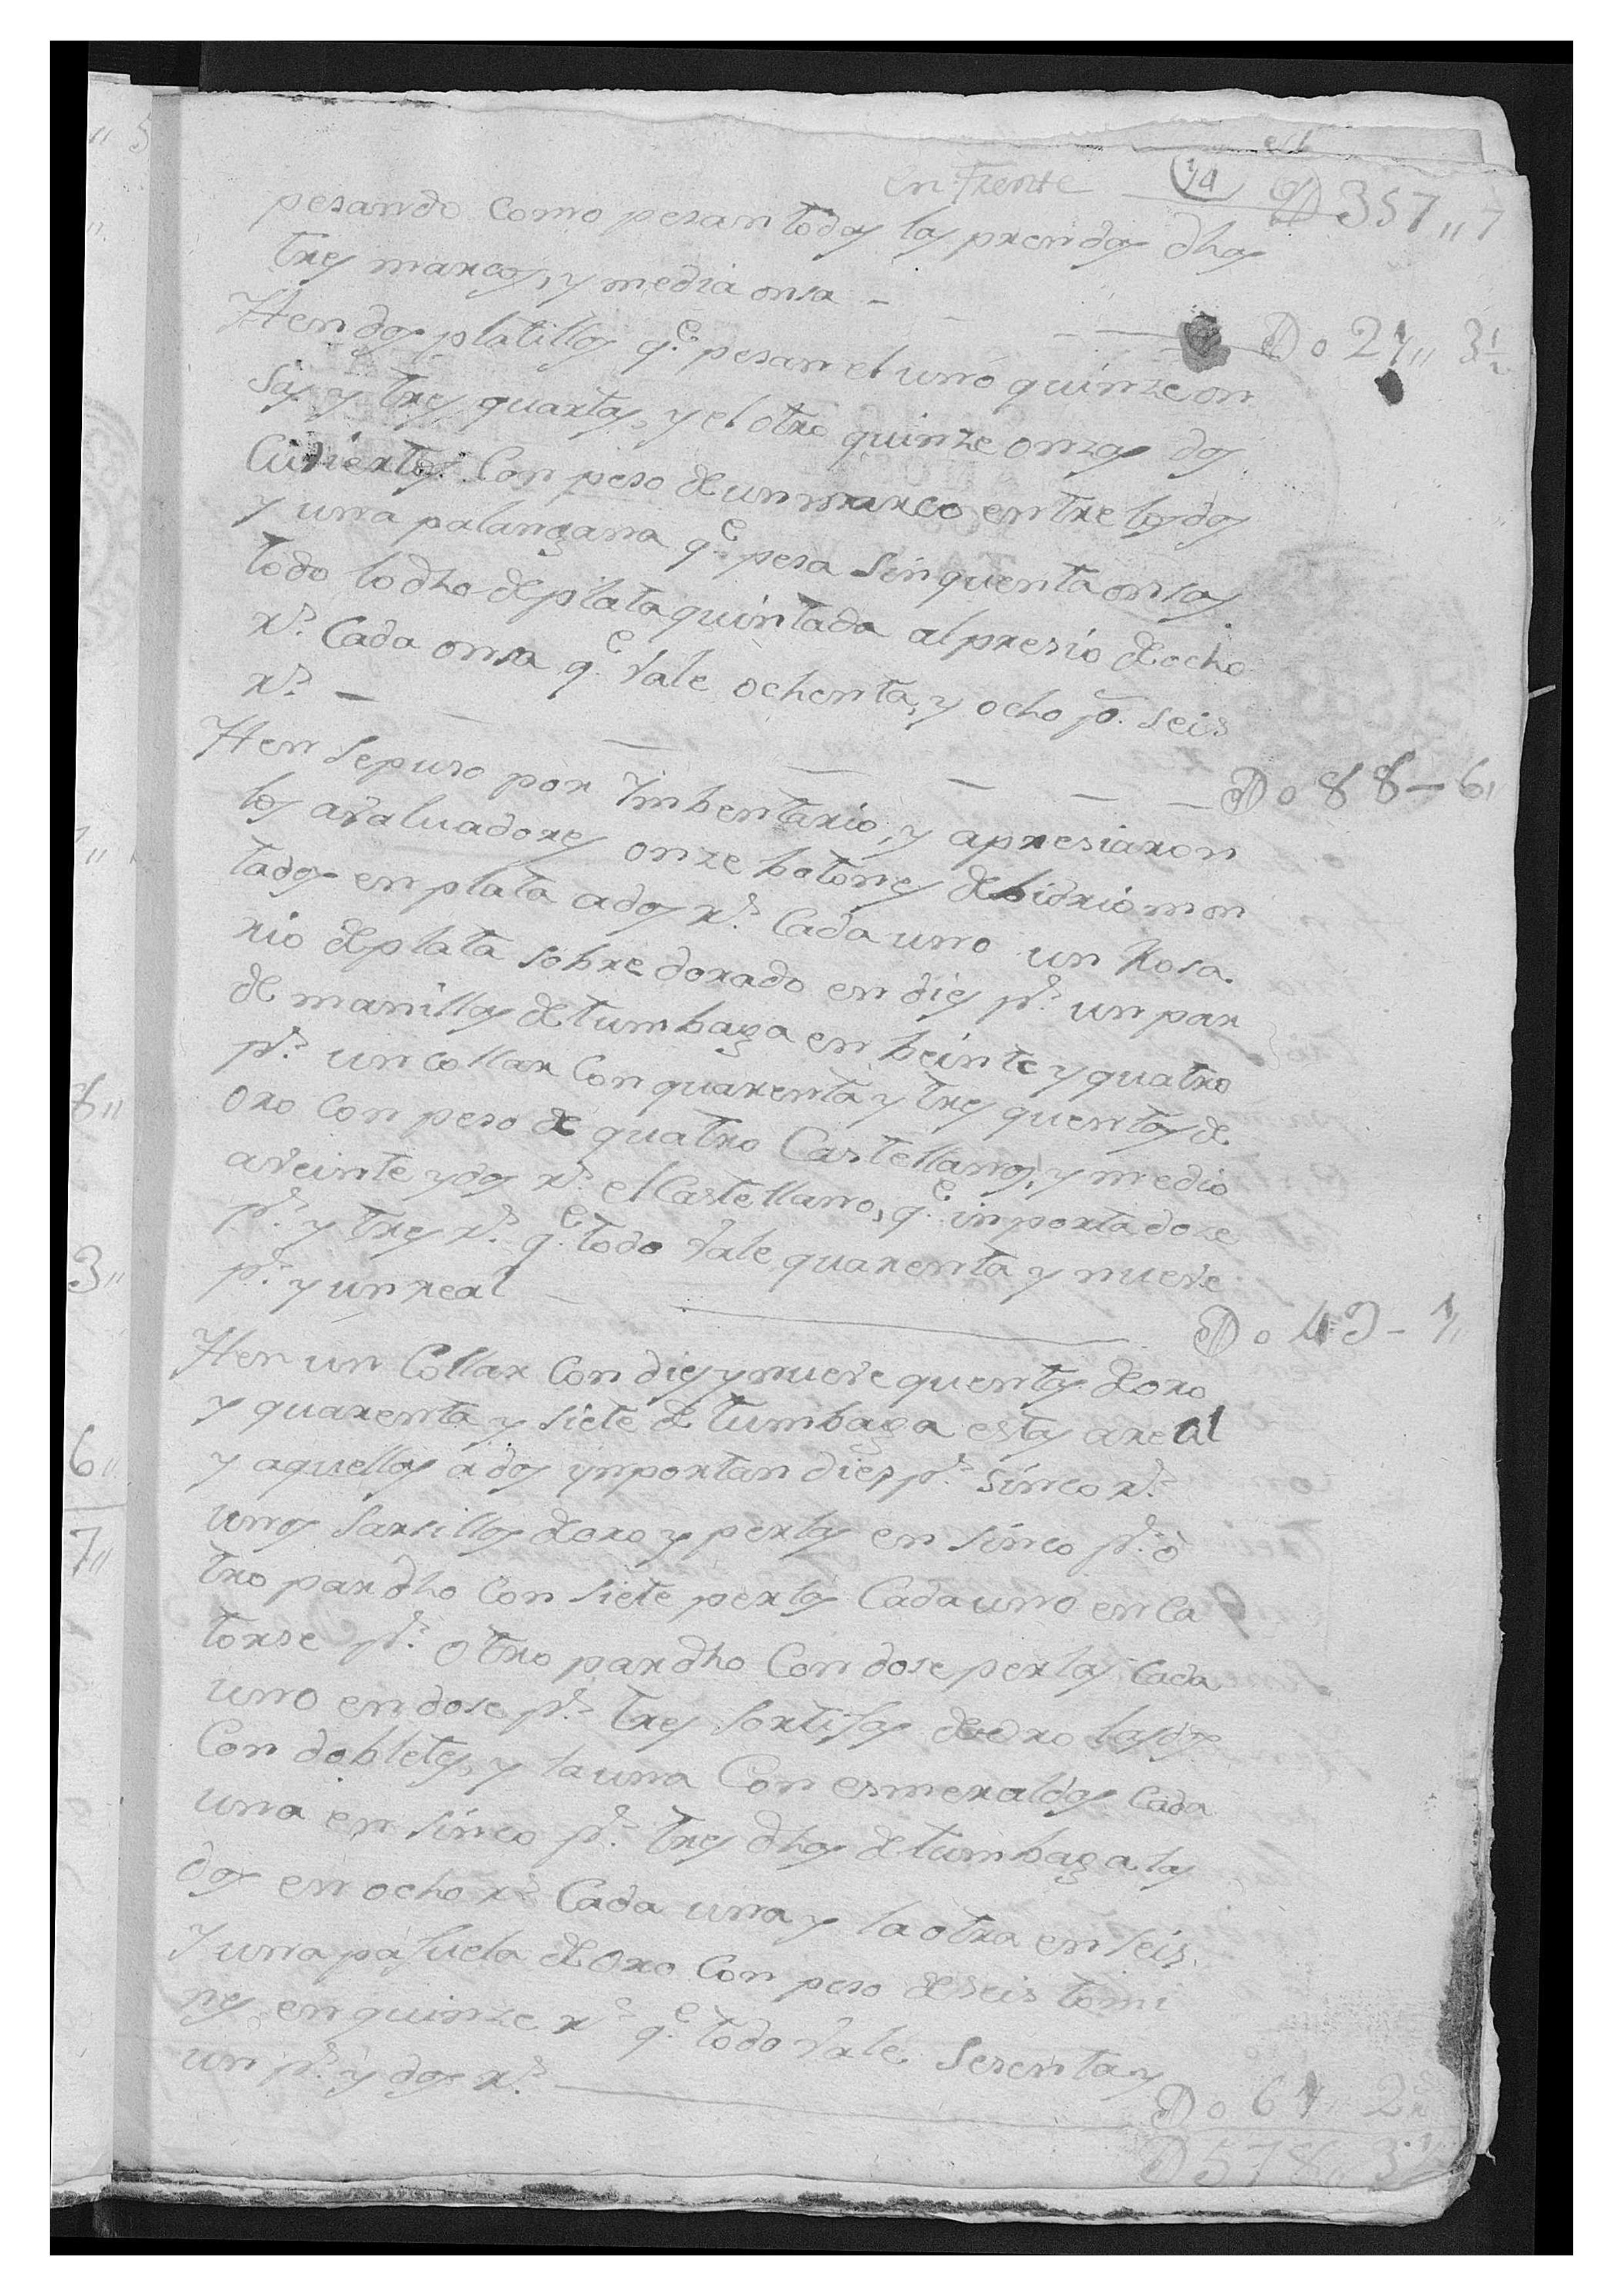 en frente 14 D 357,, 7
pesando como pesan todas las prendas dhas
tres marcos, y media onsa - D o 21,, 3 1/2
Yten dos platillos q.e pesan el uno quinze on
sas y tres quartas, y el otro quinze onzas dos
Cubiertos Con peso de un marco entre los dos
y una palangana q.e pesa sinquenta onsas
todo lo dho de plata quintada al presio de ocho
r.s Cada onsa q.e Vale ochenta, y ocho p.s seis
r.s — D o 88 - 6,,
Yten se puso por Ymbentario, y apresiaron
los avaluadores onze botones de bidrio mon
tados en plata a dos r.s Cada uno un Rosa
rio de plata sobre dorado en dies p.s un par
de manillas de tumbaga en beinte y quatro
p.s un collar Con quarenta y tres quentas de
oro con peso de quatro Castellanos, y medio
a veinte y dos r.s el Castellano, q.e inporta doze
p.s y tres r.s q.e todo Vale quarenta y nueve
p.s y un real — D o 49 - 1,,
Yten un Collar Con dies y nueve quentas de oro
y quarenta y siete de tumbaga estas a real
y aquellas a dos ynportan dies p.s sinco r.s
unos sarsillos de oro y perlas en sinco p.s o
tro par dho Con siete perlas Cada uno en Ca
torse p.s otro par dho Con dose perlas Cada
uno en dose p.s tres sortijas de oro las dos
Con dobletes, y la una Con esmeraldas Cada
una en sinco p.s tres dhas de tumbaga las
dos en ocho r.s Cada una y la otra en seis
y una pajuela de oro Con peso de seis tomi
nes en quinze r.s q.e todo Vale sesenta y
un p.s y dos r.s — D o 61,, 2
D 578,, 3 1/2